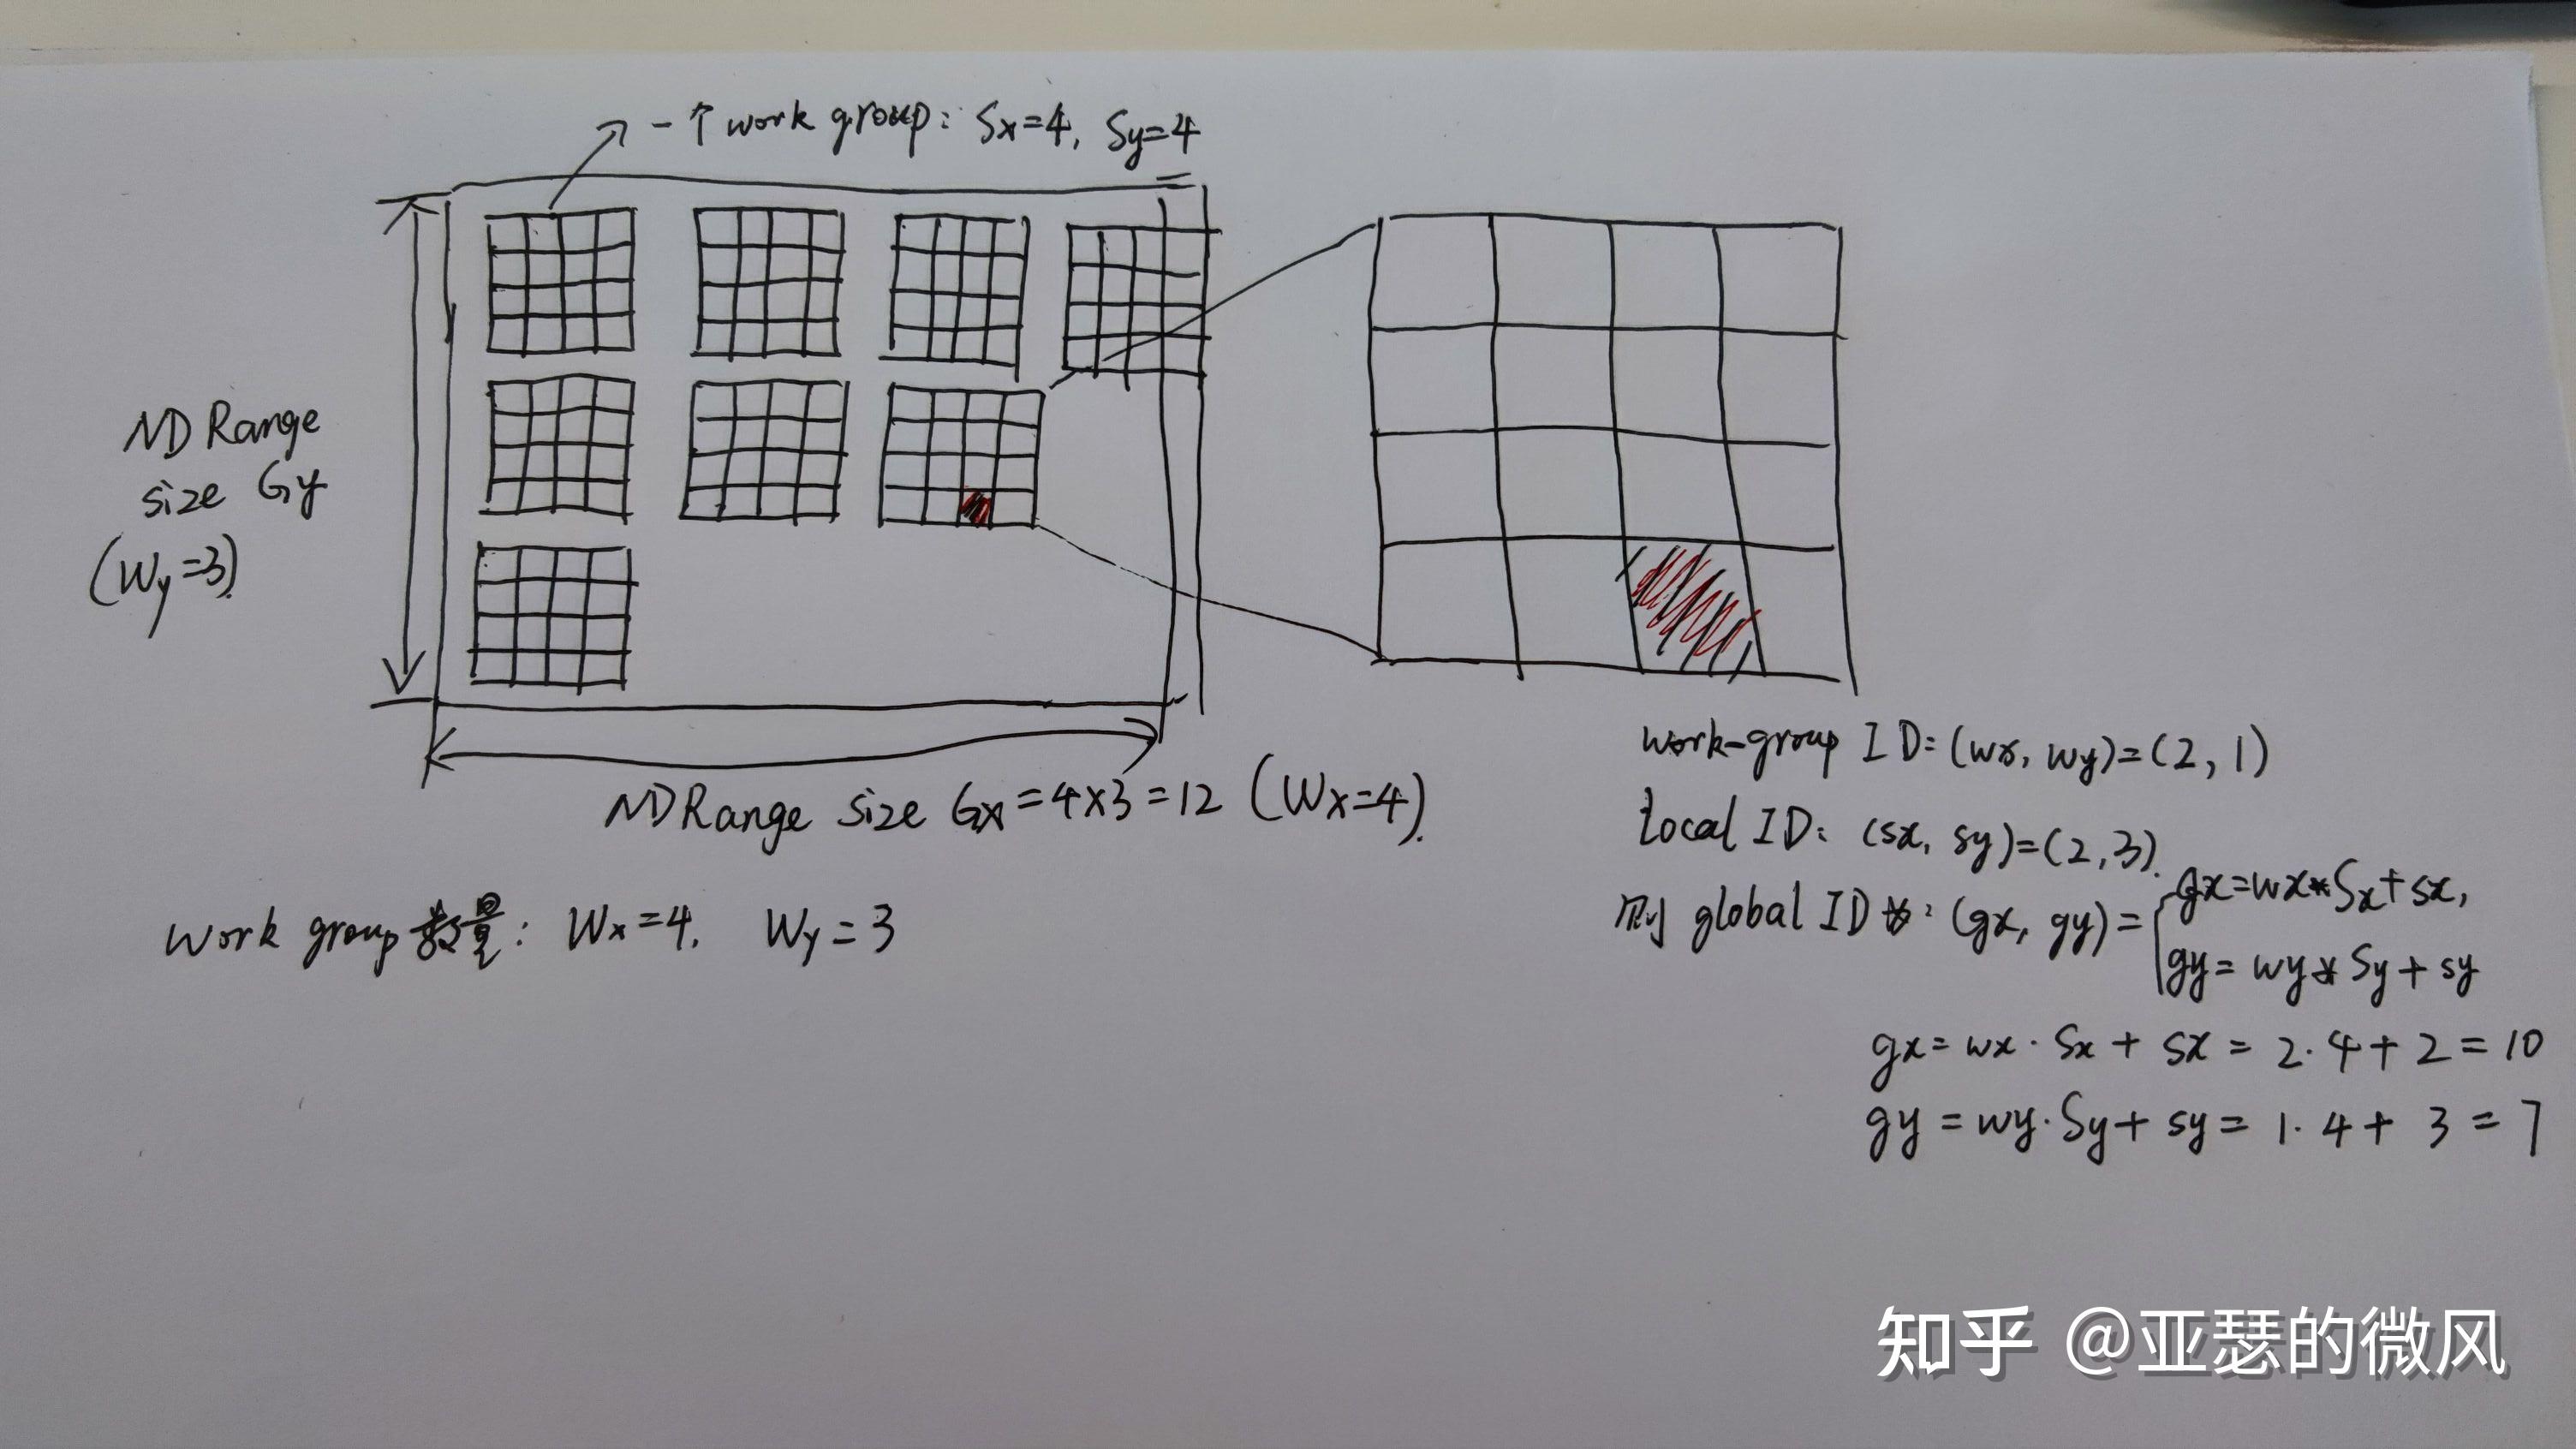 一个work group: Sx=4, Sy=4
NDRange
size Gy
(Wy=3)
NDRange size Gx=4×3=12 (Wx=4).
work group数量: Wx=4, Wy=3
work-group ID: (wx, wy)=(2, 1)
local ID: (sx, sy)=(2,3).
则 global ID为: (gx, gy)= { gx=wx*Sx+sx,
gy=wy*Sy+sy
gx=wx·Sx+sx=2·4+2=10
gy=wy·Sy+sy=1·4+3=7
知乎 @亚瑟的微风